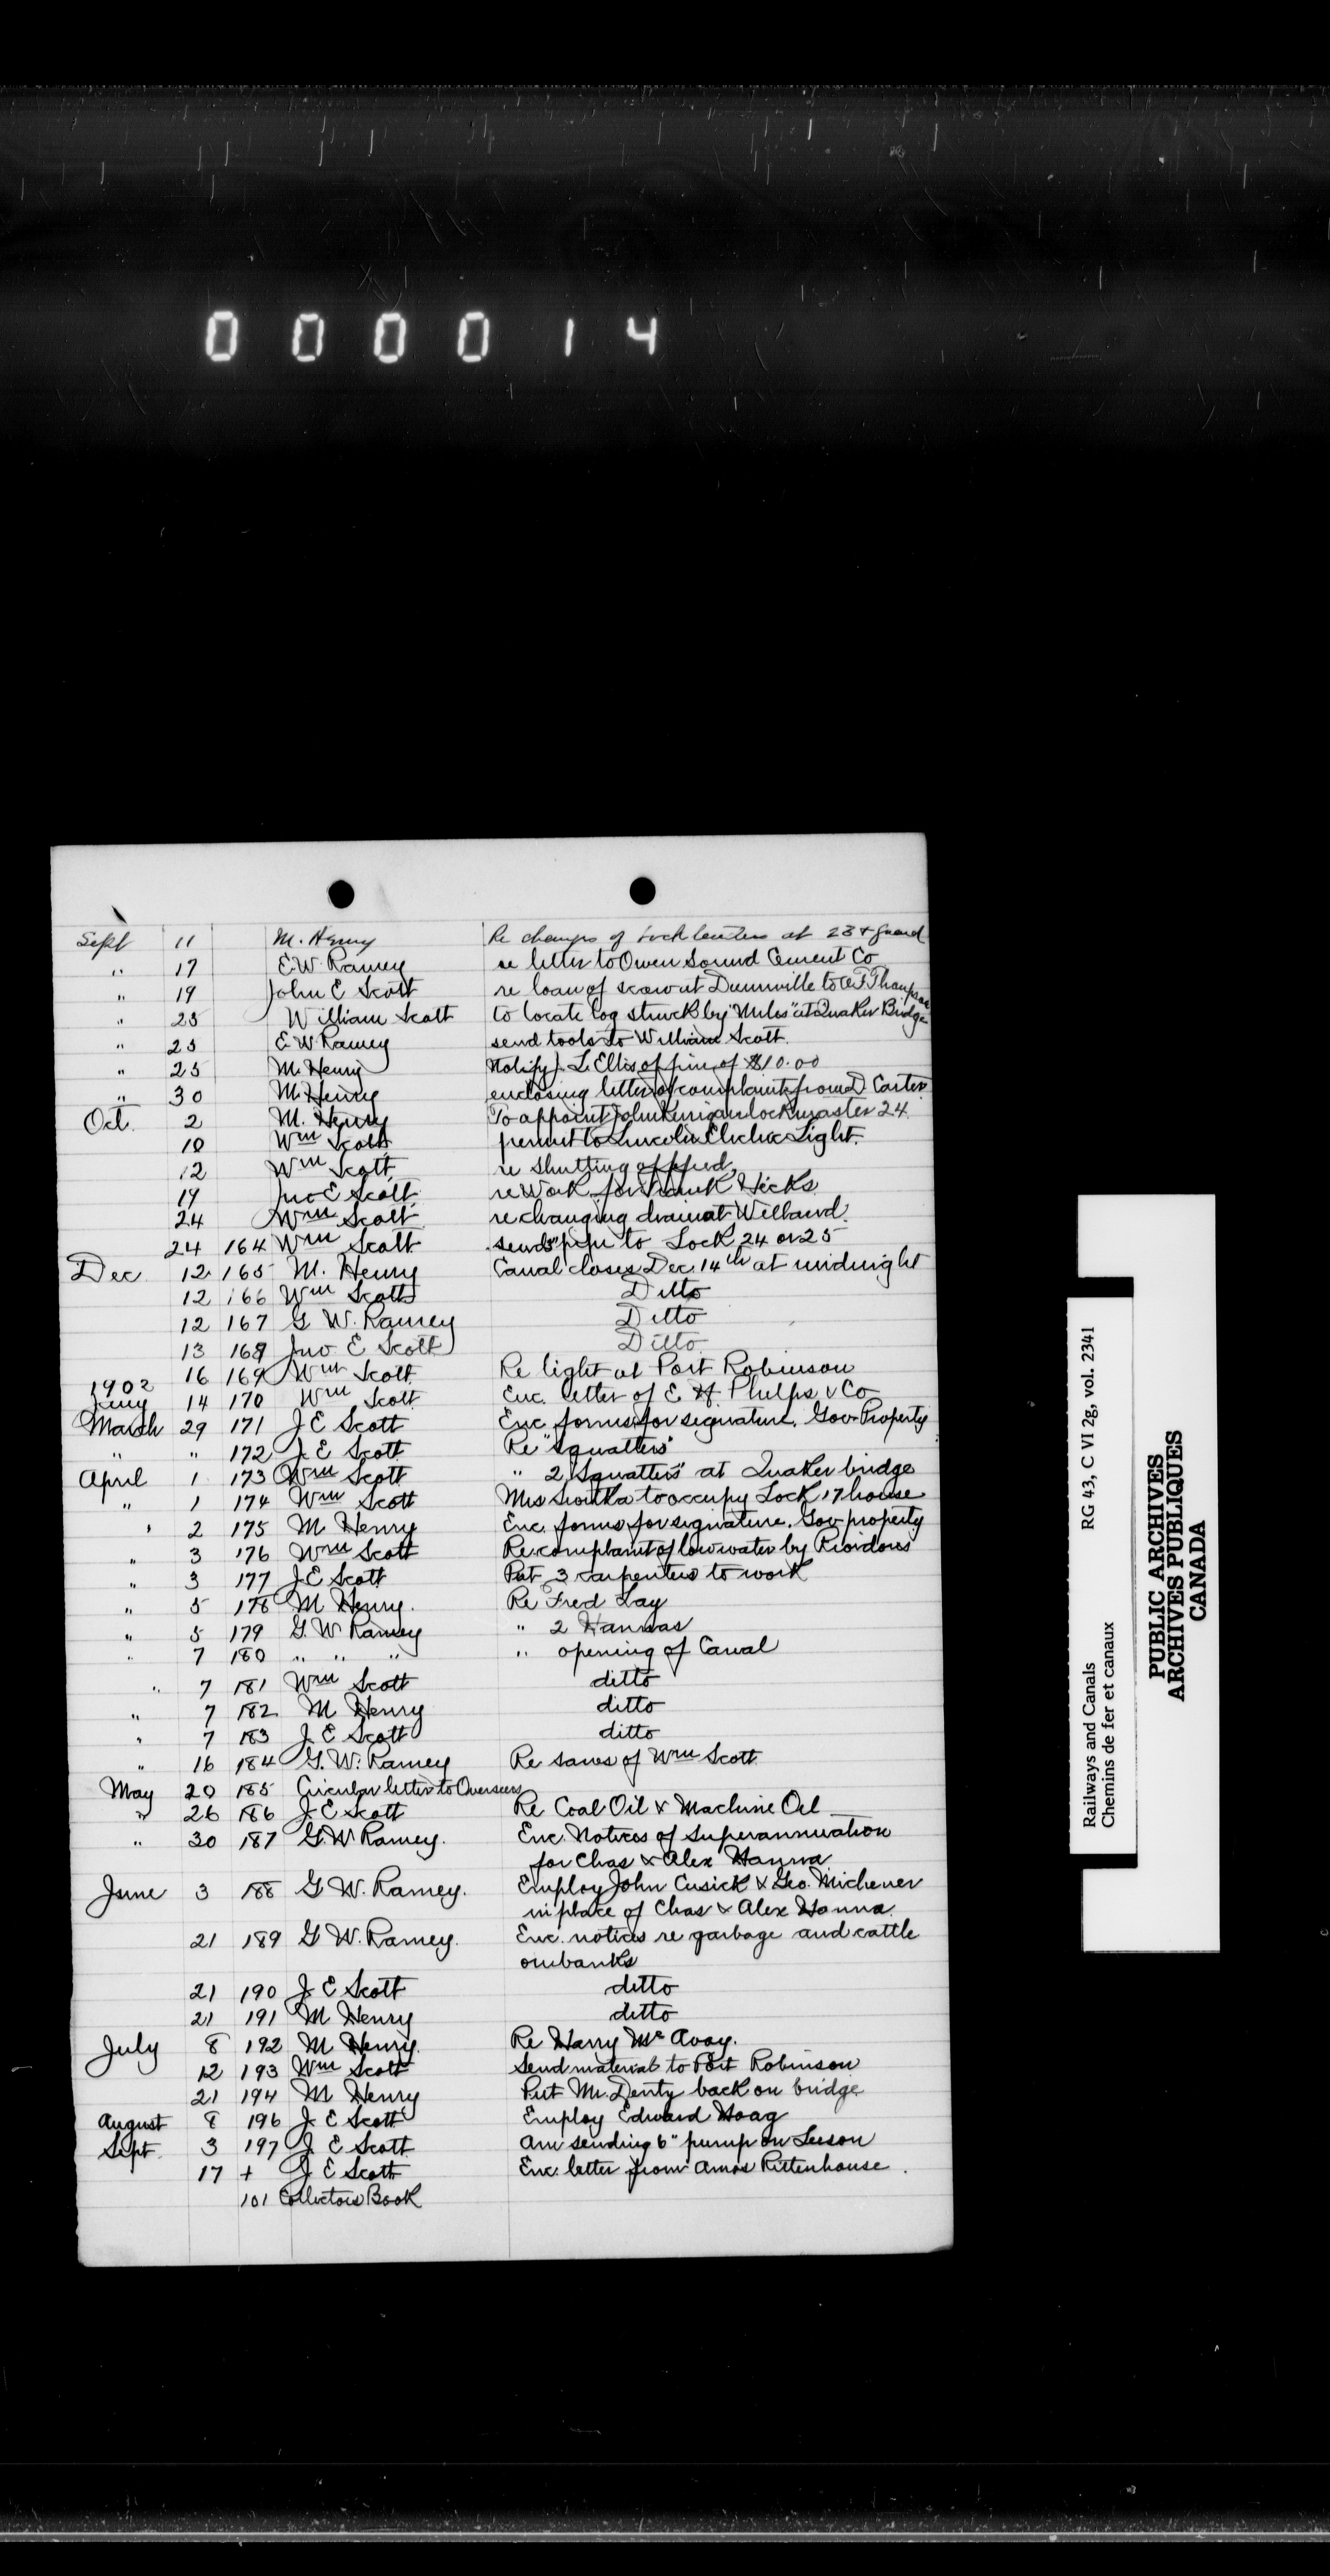 000014
Sept 11 M. Henry Re change of Lock tenders at 23 + guard
" 17 E.W. Ramey re letter to Owen Sound Cement Co
" 19 John E Scott re loan of scow at Dunnville to Thompson
" 25 William Scott to locate log struck by "Miles" at Quaker Bridge
" 25 E W Ramey send tools to William Scott.
" 25 M. Henry Notify J. L. Ellis of fine of $10.00
" 30 M. Henry enclosing letter of complaint from D Carter
Oct. 2 M. Henry To appoint John Kerrigan lockmaster 24.
10 Wm Scott permit to Lincoln Electric Light.
12 Wm Scott re shutting off feed.
19 Jno E Scott re Work for Frank Hicks
24 Wm Scott re changing drain at Welland.
24 164 Wm Scott send pipe to Lock 24 or 25
Dec 12 165 M. Henry Canal closes Dec. 14th at midnight
12 166 Wm Scott Ditto
12 167 G W. Ramey Ditto
13 168 Jno E Scott Ditto
16 169 Wm Scott Re light at Port Robinson
1902
Jany 14 170 Wm Scott Enc. letter of E H. Phelps & Co
March 29 171 J E Scott Enc forms for signature. Gov Property
" " 172 J. E Scott Re "Squatters"
April 1 173 Wm Scott " 2 "Squatters" at Quaker bridge
" 1 174 Wm Scott Mrs to occupy Lock 17 house
" 2 175 M Henry Enc. forms for signature. Gov property
" 3 176 Wm Scott Re complaint of low water by Riordons
" 3 177 J E Scott Put 3 carpenters to work
" 5 178 M Henry. Re Fred Lay
" 5 179 G. W Ramey " 2 Hannas
" 7 180 " " " " opening of Canal
" 7 181 Wm Scott ditto
" 7 182 M Henry ditto
" 7 183 J. E Scott ditto
" 16 184 G. W. Ramey Re saws of Wm Scott
May 20 185 Circular letter to Overseers
" 26 186 J. E Scott Re Coal Oil & Machine Oil
" 30 187 G. W Ramey. Enc. Notices of Superannuation
for Chas & Alex Hanna
June 3 188 G W. Ramey. Employ John Cusick & Geo. Michener
in place of Chas & Alex Hanna.
21 189 G W. Ramey. Enc. notices re garbage and cattle
on banks
21 190 J. E Scott ditto
21 191 M Henry ditto
July 8 192 M Henry. Re Harry Mc Avoy.
12 193 Wm Scott Send material to Port Robinson
21 194 M Henry Put Mr. Denty back on bridge
August 8 196 J. E Scott Employ Edward Hoag
Sept 3 197 J. E Scott Am sending 6" pump on Leeson
17 + J E Scott Enc. letter from Amos Rittenhouse.
101 Collectors Book
Railways and Canals RG 43, C VI 2g, vol. 2341
Chemins de fer et canaux
PUBLIC ARCHIVES
ARCHIVES PUBLIQUES
CANADA